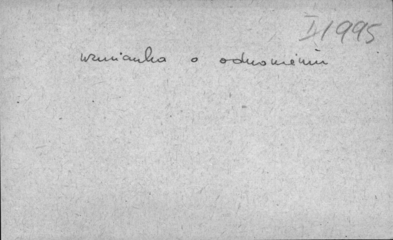 I/1995
wzmianka o odnowieniu